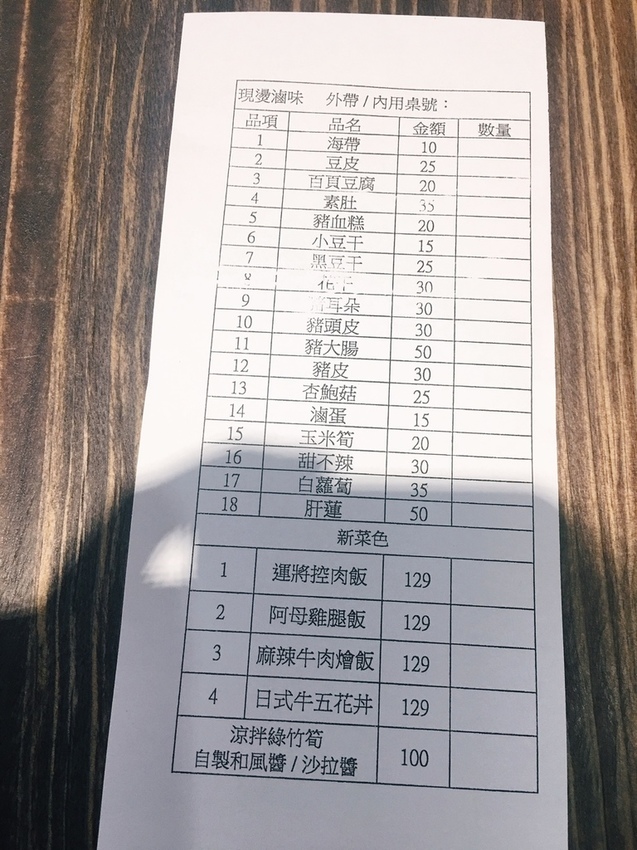 現燙滷味 外帶 / 內用桌號：
品項 品名 金額 數量
1 海帶 10
2 豆皮 25
3 百頁豆腐 20
4 素肚 35
5 豬血糕 20
6 小豆干 15
7 黑豆干 25
8 花干 30
9 豬耳朵 30
10 豬頭皮 30
11 豬大腸 50
12 豬皮 30
13 杏鮑菇 25
14 滷蛋 15
15 玉米筍 20
16 甜不辣 30
17 白蘿蔔 35
18 肝蓮 50
新菜色
1 運將控肉飯 129
2 阿母雞腿飯 129
3 麻辣牛肉燴飯 129
4 日式牛五花丼 129
涼拌綠竹筍
自製和風醬 / 沙拉醬 100